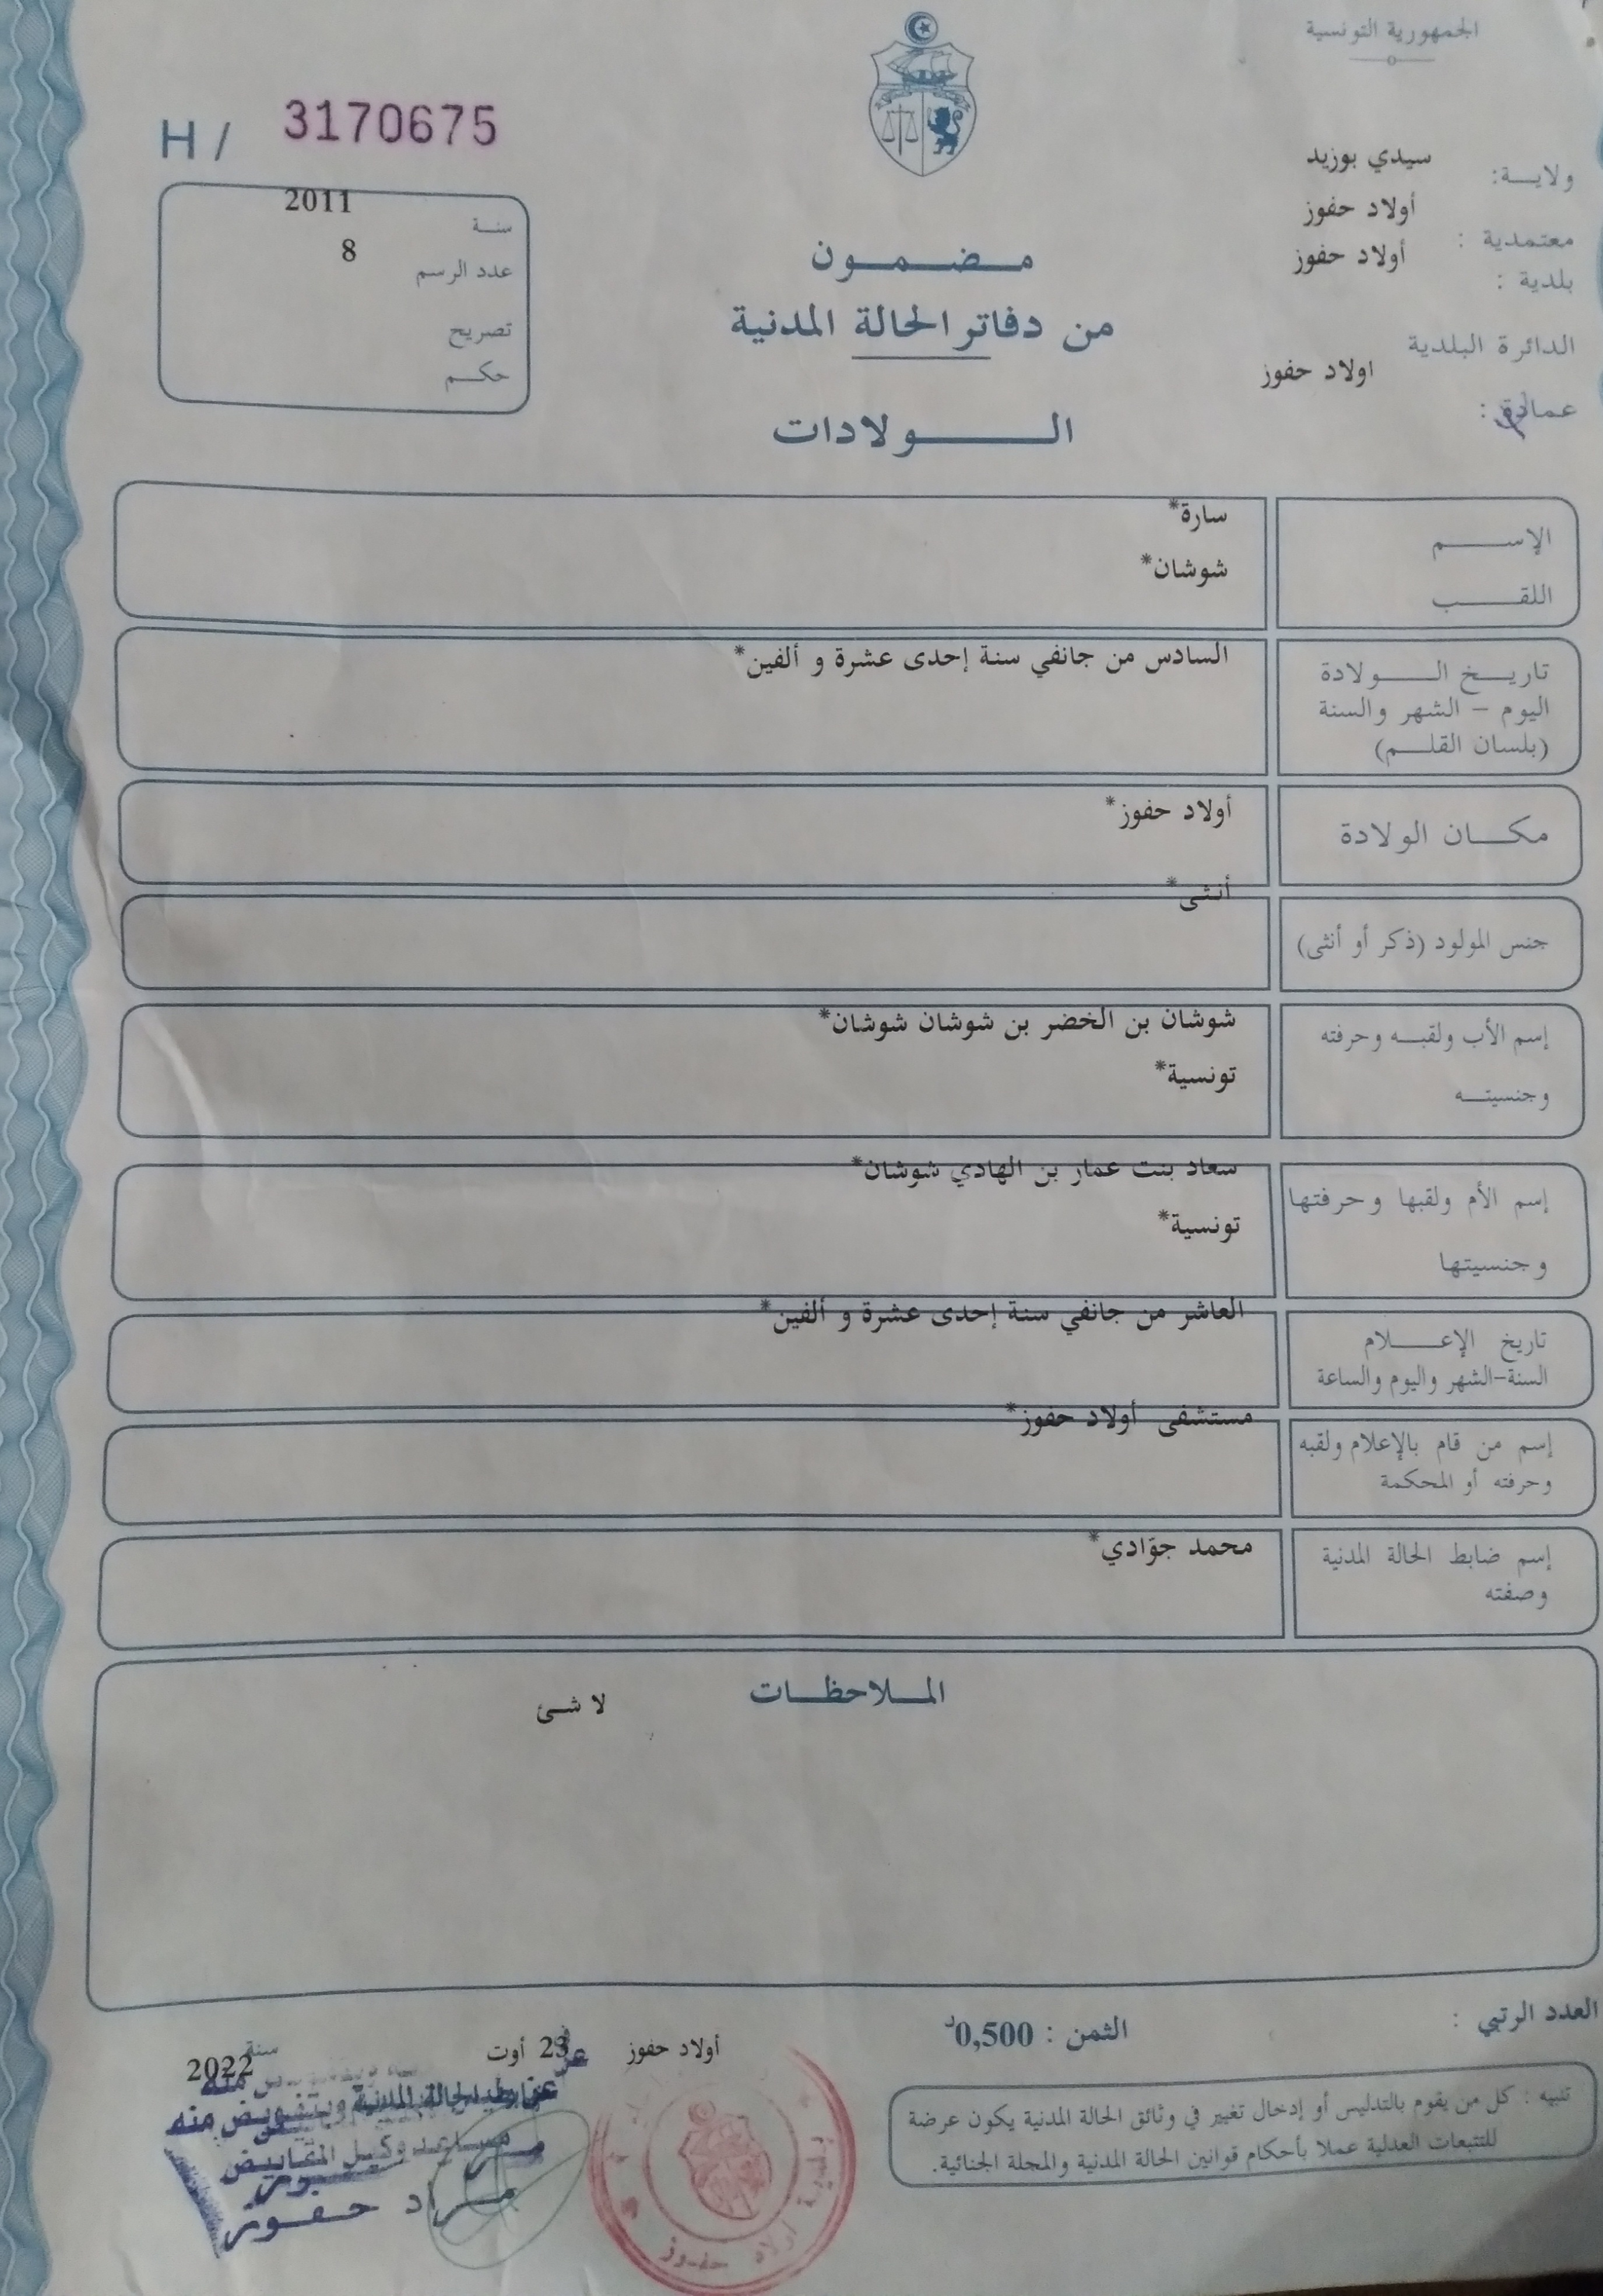 الجمهورية التونسية
H / 3170675
ولايـــة: سيدي بوزيد
معتمدية : أولاد حفوز
بلدية : أولاد حفوز
الدائرة البلدية اولاد حفوز
عمادة :
سنة 2011
عدد الرسم 8
تصريح
حكم
مضمون
من دفاتر الحالة المدنية
الولادات
الإسم سارة*
اللقب شوشان*
تاريخ الولادة السادس من جانفي سنة إحدى عشرة و ألفين*
اليوم - الشهر والسنة
(بلسان القلم)
مكان الولادة أولاد حفوز*
جنس المولود (ذكر أو أنثى) أنثى*
إسم الأب ولقبه وحرفته شوشان بن الخضر بن شوشان شوشان*
وجنسيته تونسية*
إسم الأم ولقبها وحرفتها سعاد بنت عمار بن الهادي شوشان*
وجنسيتها تونسية*
تاريخ الإعلام العاشر من جانفي سنة إحدى عشرة و ألفين*
السنة-الشهر واليوم والساعة
إسم من قام بالإعلام ولقبه مستشفى أولاد حفوز*
وحرفته أو المحكمة
إسم ضابط الحالة المدنية محمد جوّادي*
وصفته
الملاحظات
لا شئ
العدد الرتبي :
الثمن : 0,500د
أولاد حفوز في 23 أوت سنة 2022
تنبيه : كل من يقوم بالتدليس أو إدخال تغيير في وثائق الحالة المدنية يكون عرضة
للتتبعات العدلية عملا بأحكام قوانين الحالة المدنية والمجلة الجنائية.
الحالة المدنية وبتفويض منه
مساعد وكيل المقابيض
مراد حفوز
بلدية أولاد حفوز